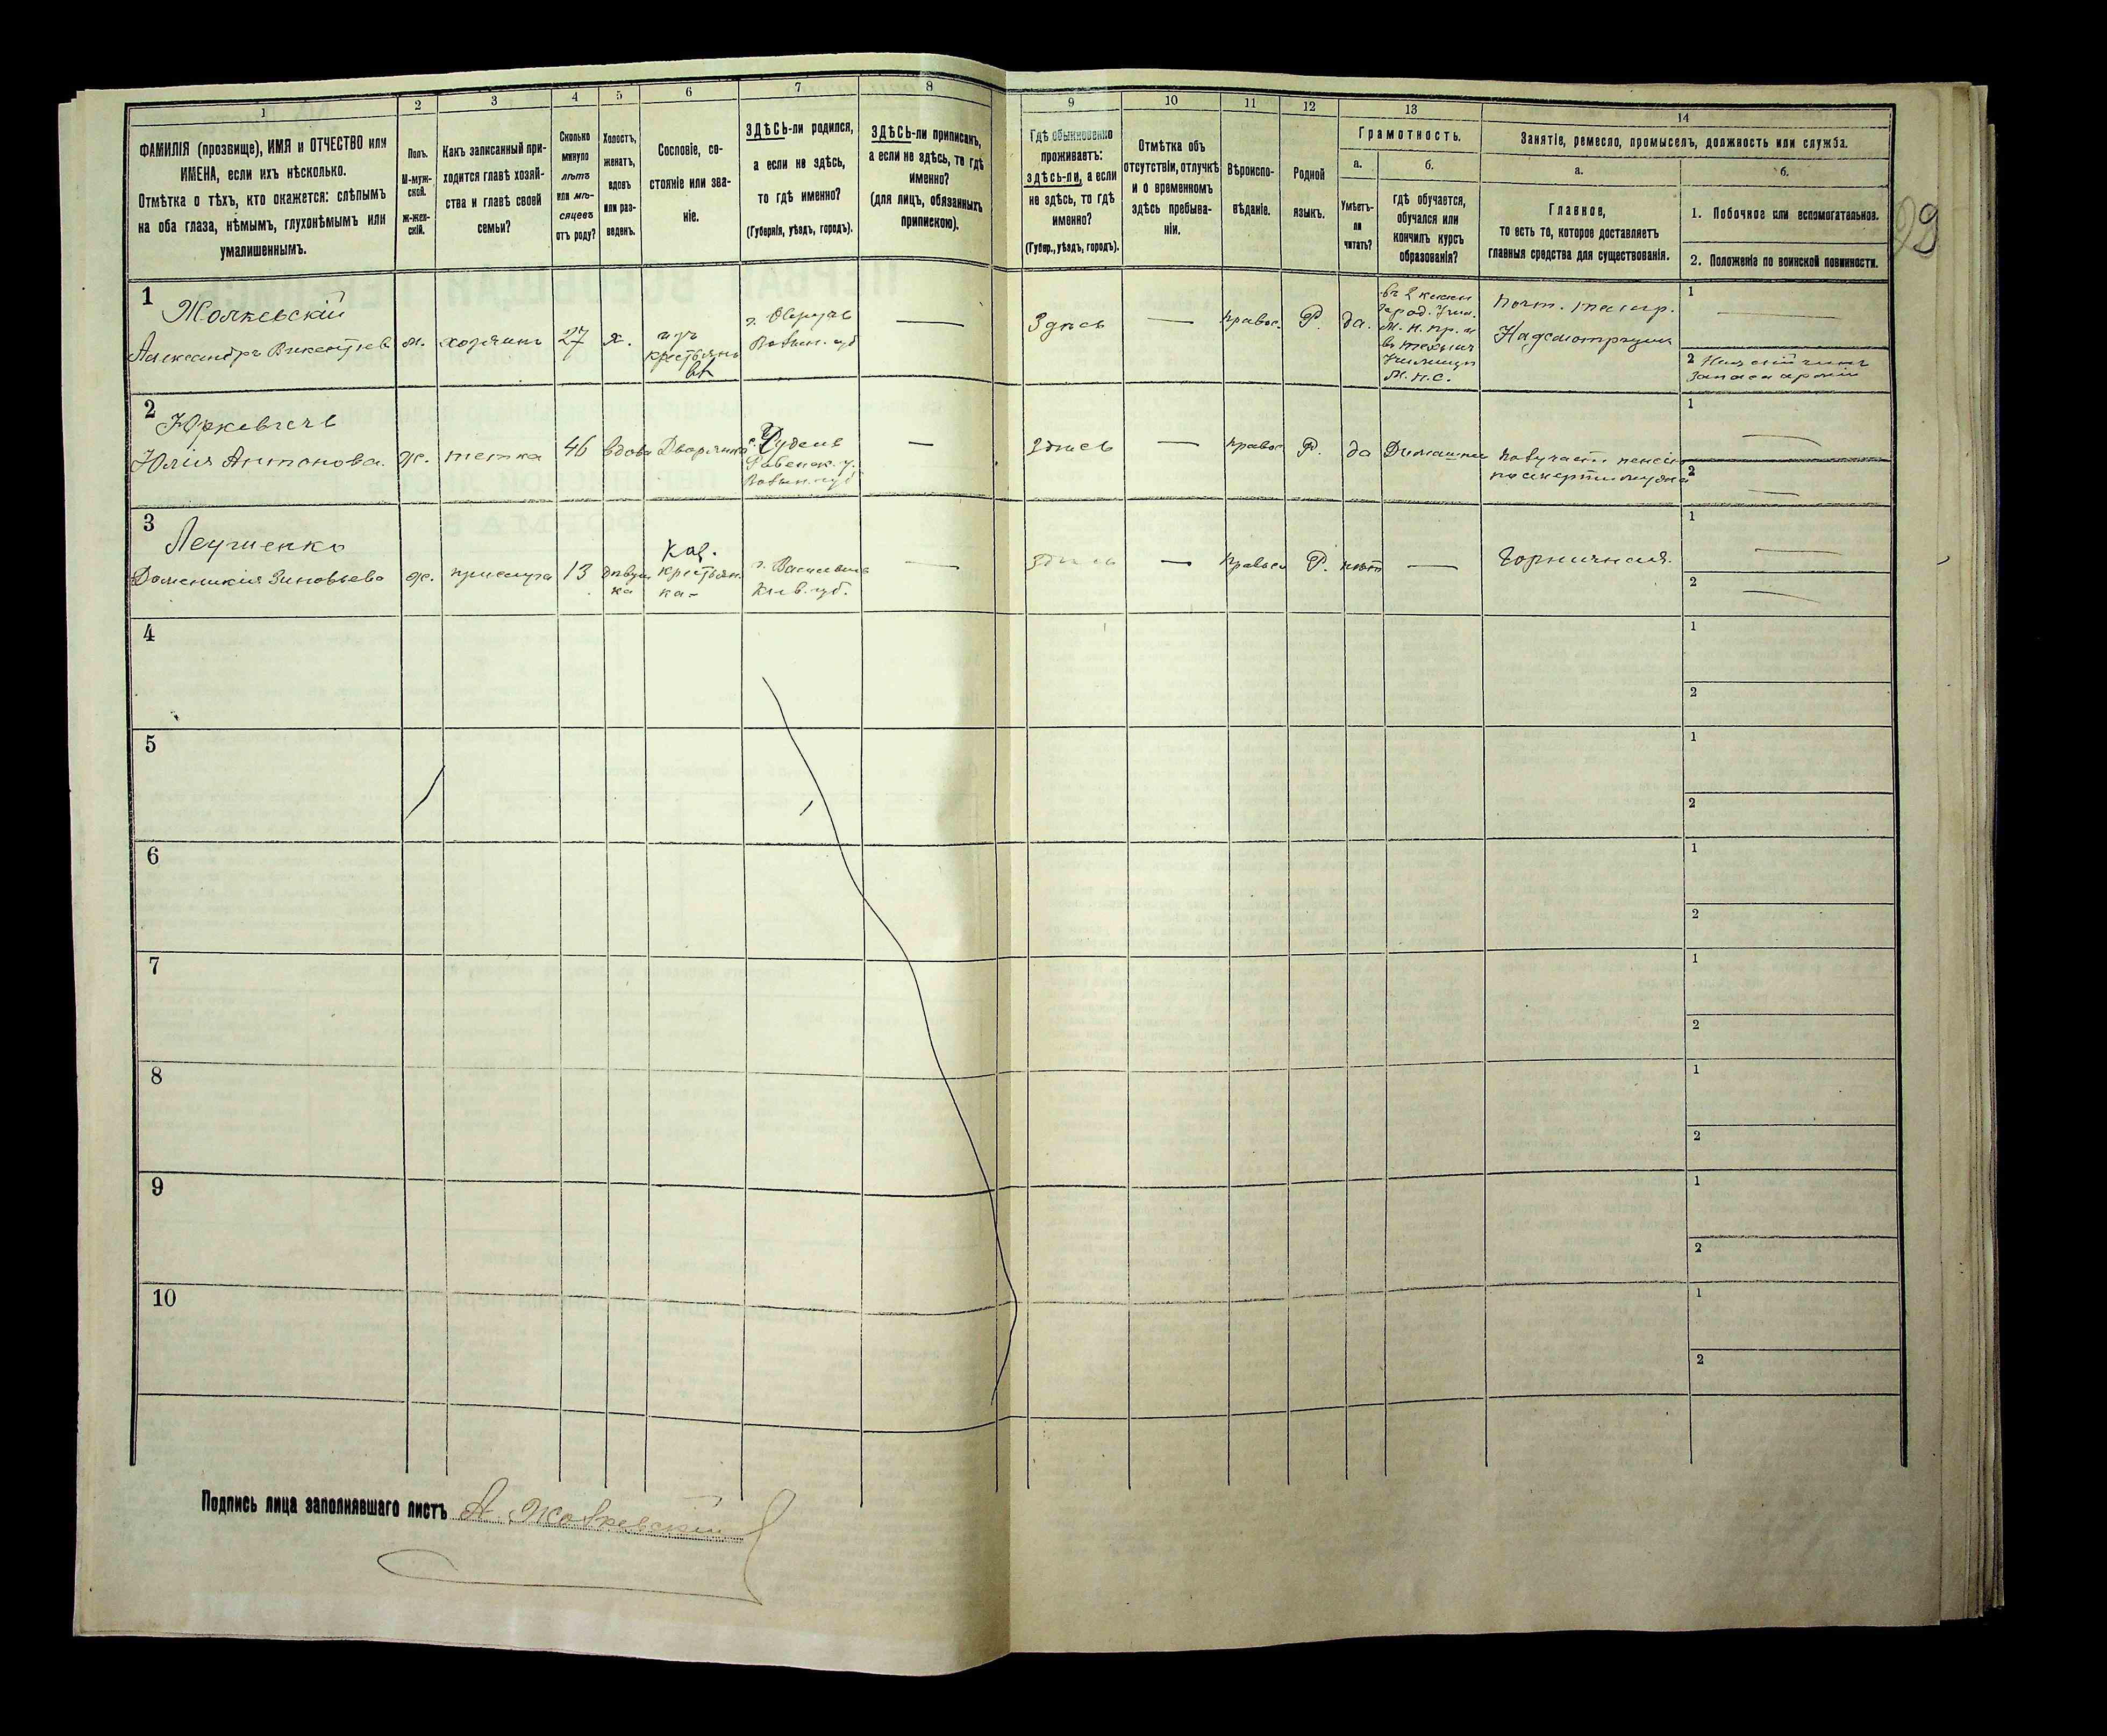 1
ФАМИЛІЯ (прозвище), ИМЯ и ОТЧЕСТВО или
ИМЕНА, если ихъ нѣсколько.
Отмѣтка о тѣхъ, кто окажется: слѣпымъ
на оба глаза, нѣмымъ, глухонѣмымъ или
умалишеннымъ.
2
Полъ.
М-муж-
ской.
Ж-жен-
скій.
3
Какъ записанный при-
ходится главѣ хозяй-
ства и главѣ своей
семьи?
4
Сколько
минуло
лѣтъ
или мѣ-
сяцевъ
отъ роду?
5
Холостъ,
женатъ,
вдовъ
или раз-
веденъ.
6
Сословіе, со-
стояніе или зва-
ніе.
7
ЗДѢСЬ-ли родился,
а если не здѣсь,
то гдѣ именно?
(Губернія, уѣздъ, городъ).
8
ЗДѢСЬ-ли приписанъ,
а если не здѣсь, то гдѣ
именно?
(для лицъ, обязанныхъ
припискою).
9
Гдѣ обыкновенно
проживаетъ:
здѣсь-ли, а если
не здѣсь, то гдѣ
именно?
(Губер., уѣздъ, городъ).
10
Отмѣтка объ
отсутствіи, отлучкѣ
и о временномъ
здѣсь пребыва-
ніи.
11
Вѣроиспо-
вѣданіе.
12
Родной
языкъ.
13
Грамотность.
а.
Умѣетъ-
ли
читать?
б.
гдѣ обучается,
обучался или
кончилъ курсъ
образованія?
14
Занятіе, ремесло, промыселъ, должность или служба.
а.
Главное,
то есть то, которое доставляетъ
главныя средства для существованія.
б.
1. Побочное или вспомогательное.
2. Положеніе по воинской повинности.
99
1
Жолкевскій
Александръ Викентьев
м.
хозяинъ
27
х.
изъ
крестьянъ
г. Овручъ
Волын. губ
—
Здѣсь
—
правос.
Р.
да.
въ 2 класн
город. Учил.
М. Н. Пр. и
въ технич
Училищѣ
М. П. С.
Почт. телегр.
Надсмотрщик
1 —
2 Нижній чинъ
запаса арміи
2
Юркевичъ
Юлія Антонова.
ж.
тетка
46
вдова
Дворянка
с. Чудель
Ровенск. у.
Волын. губ
—
Здѣсь
—
правос
Р.
да
Домашнее
получаетъ пенсію
по смерти мужа
1 —
2 —
3
Домникія Зиновьева
ж.
прислуга
13
дѣвуш
ка
каз.
крестьян
ка-
г. Васильков
Киев. губ.
—
Здѣсь
—
правосл
Р.
нѣт
—
Горничная.
1 —
2 —
4
1
2
5
1
2
6
1
2
7
1
2
8
1
2
9
1
2
10
1
2
Подпись лица заполнявшаго листъ А. Жолкевскій